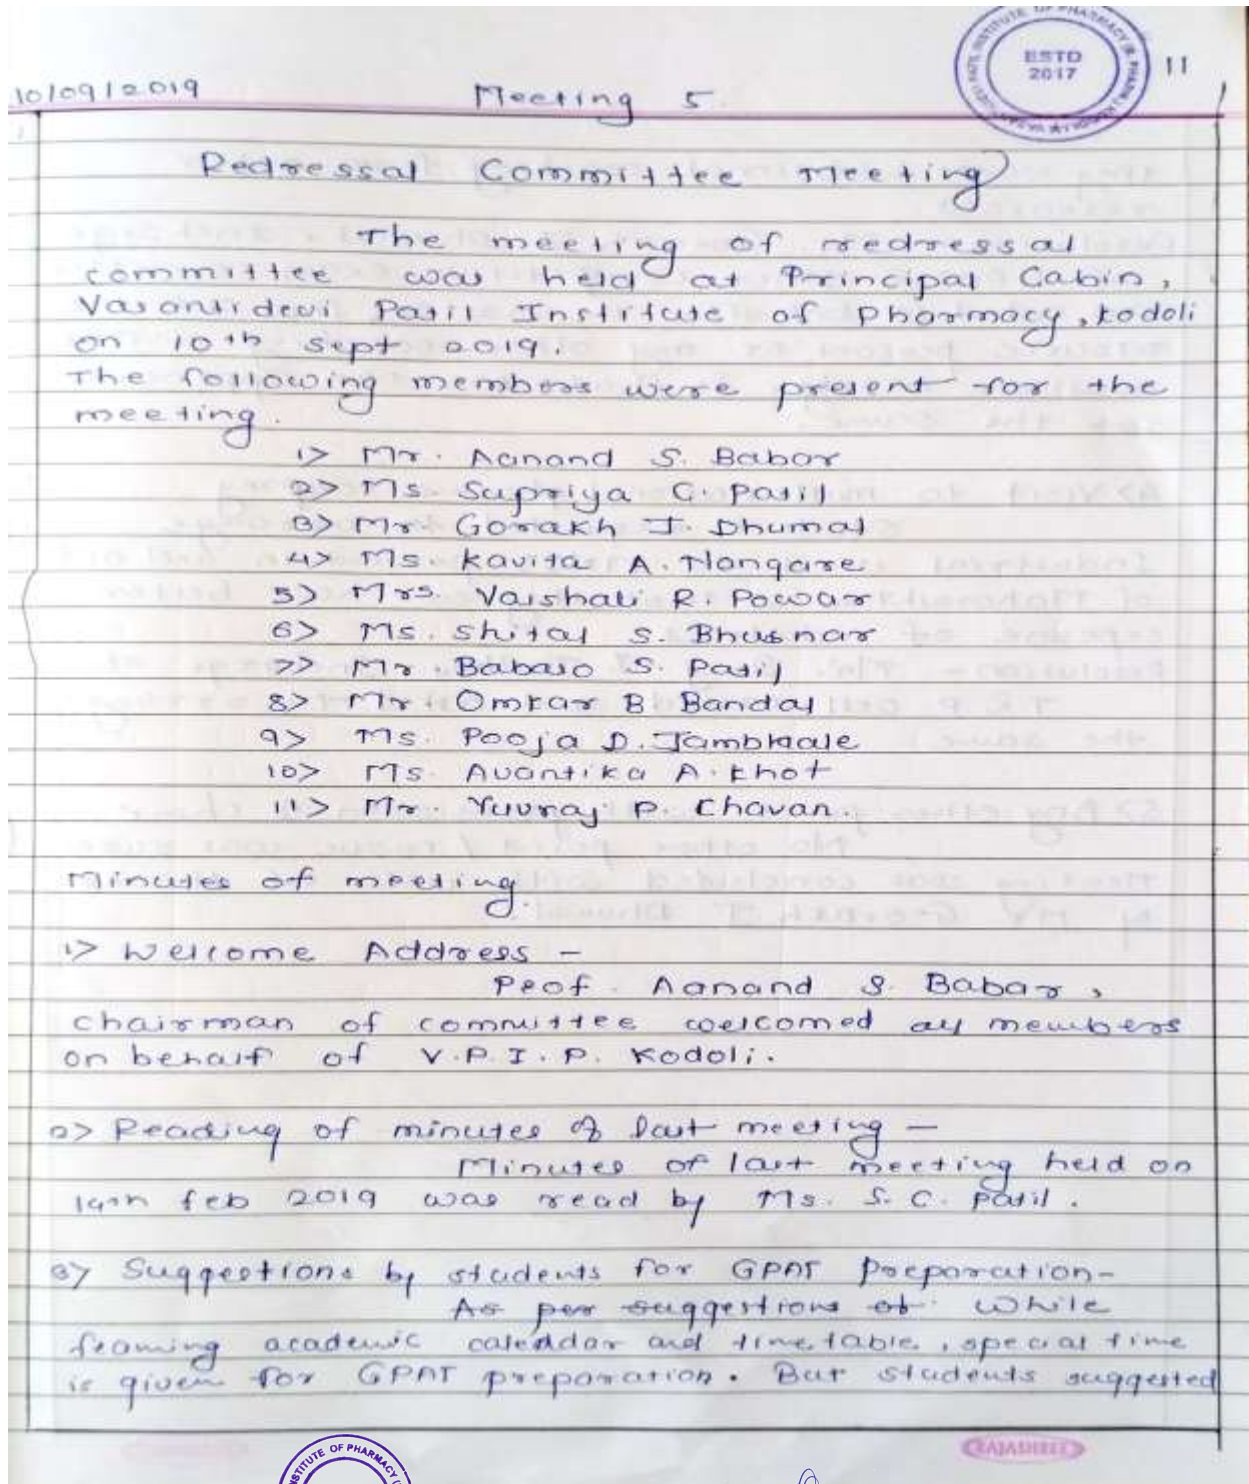 INSTITUTE OF PHARMACY
ESTD
2017
11
10/09/2019
Meeting 5
Redressal Committee Meeting
The meeting of redressal
committee was held at Principal Cabin,
Vasantidevi Patil Institute of Pharmacy, Kodoli
on 10th Sept 2019.
The following members were present for the
meeting.
1> Mr. Aanand S. Babar
2> Ms. Supriya C. Patil
3> Mr. Gorakh J. Dhumal
4> Ms. Kavita A. Nangare
5> Mrs. Vaishali R. Powar
6> Ms. Shital S. Bhusnar
7> Mr. Babaso S. Patil
8> Mr. Omkar B Bandal
9> Ms. Pooja D. Jambhale
10> Ms. Avantika A. Khot
11> Mr. Yuvraj P. Chavan.
Minutes of meeting.
1> Welcome Address -
Prof. Aanand S. Babar,
chairman of committee welcomed all members
on behalf of V.P.I.P. Kodoli.
2> Reading of minutes of last meeting -
Minutes of last meeting held on
14th feb 2019 was read by Ms. S. C. Patil.
3> Suggestions by students for GPAT Preparation-
As per suggestions of While
framing academic calendar and time table, special time
is given for GPAT preparation. But students suggested
RAJASHREE
INSTITUTE OF PHARMACY